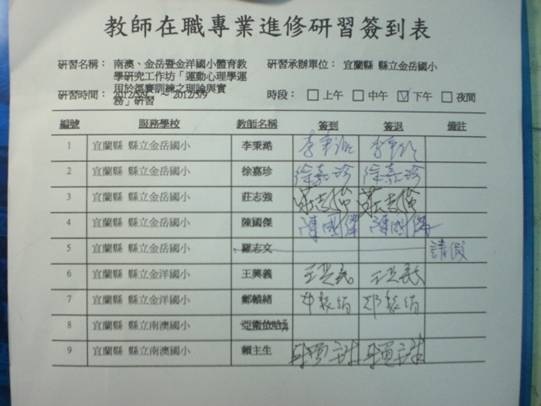 教師在職專業進修研習簽到表
研習名稱： 南澳、金岳暨金洋國小體育教 研習承辦單位： 宜蘭縣 縣立金岳國小
學研究工作坊「運動心理學運
用於競賽訓練之理論與實
務」研習
研習時間： ～ 2012/5/9 時段： 上午 中午 下午 夜間
編號 服務學校 教師名稱 簽到 簽退 備註
1 宜蘭縣 縣立金岳國小 李秉
2 宜蘭縣 縣立金岳國小 徐嘉珍 徐嘉珍 徐嘉珍
3 宜蘭縣 縣立金岳國小 莊志強 莊志強 莊志強
4 宜蘭縣 縣立金岳國小 陳國傑 陳國傑 陳國傑
5 宜蘭縣 縣立金岳國小 羅志文 請假
6 宜蘭縣 縣立金洋國小 王興義
7 宜蘭縣 縣立金洋國小
8 宜蘭縣 縣立南澳國小
9 宜蘭縣 縣立南澳國小 賴主生